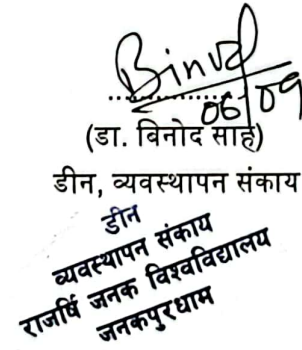 Binod
06/09
(डा. बिनोद साह)
डीन, व्यवस्थापन संकाय
डीन
व्यवस्थापन संकाय
राजर्षि जनक विश्वविद्यालय
जनकपुरधाम